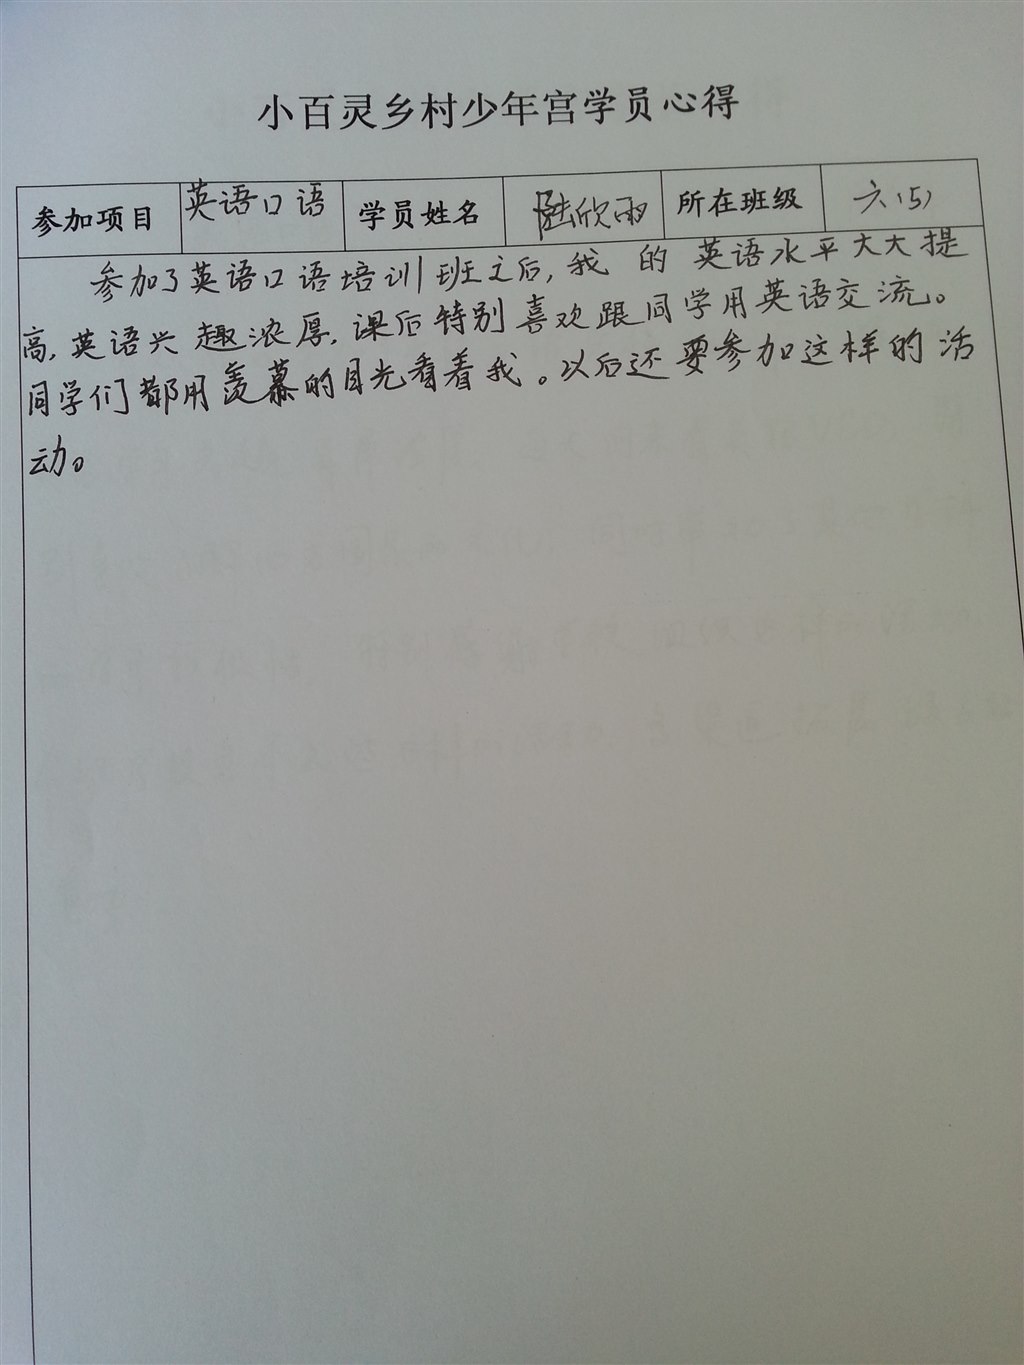 小百灵乡村少年宫学员心得
参加项目 英语口语 学员姓名 陆欣雨 所在班级 六(5)
参加了英语口语培训班之后,我的英语水平大大提
高,英语兴趣浓厚,课后特别喜欢跟同学用英语交流。
同学们都用羡慕的目光看着我。以后还要参加这样的活
动。